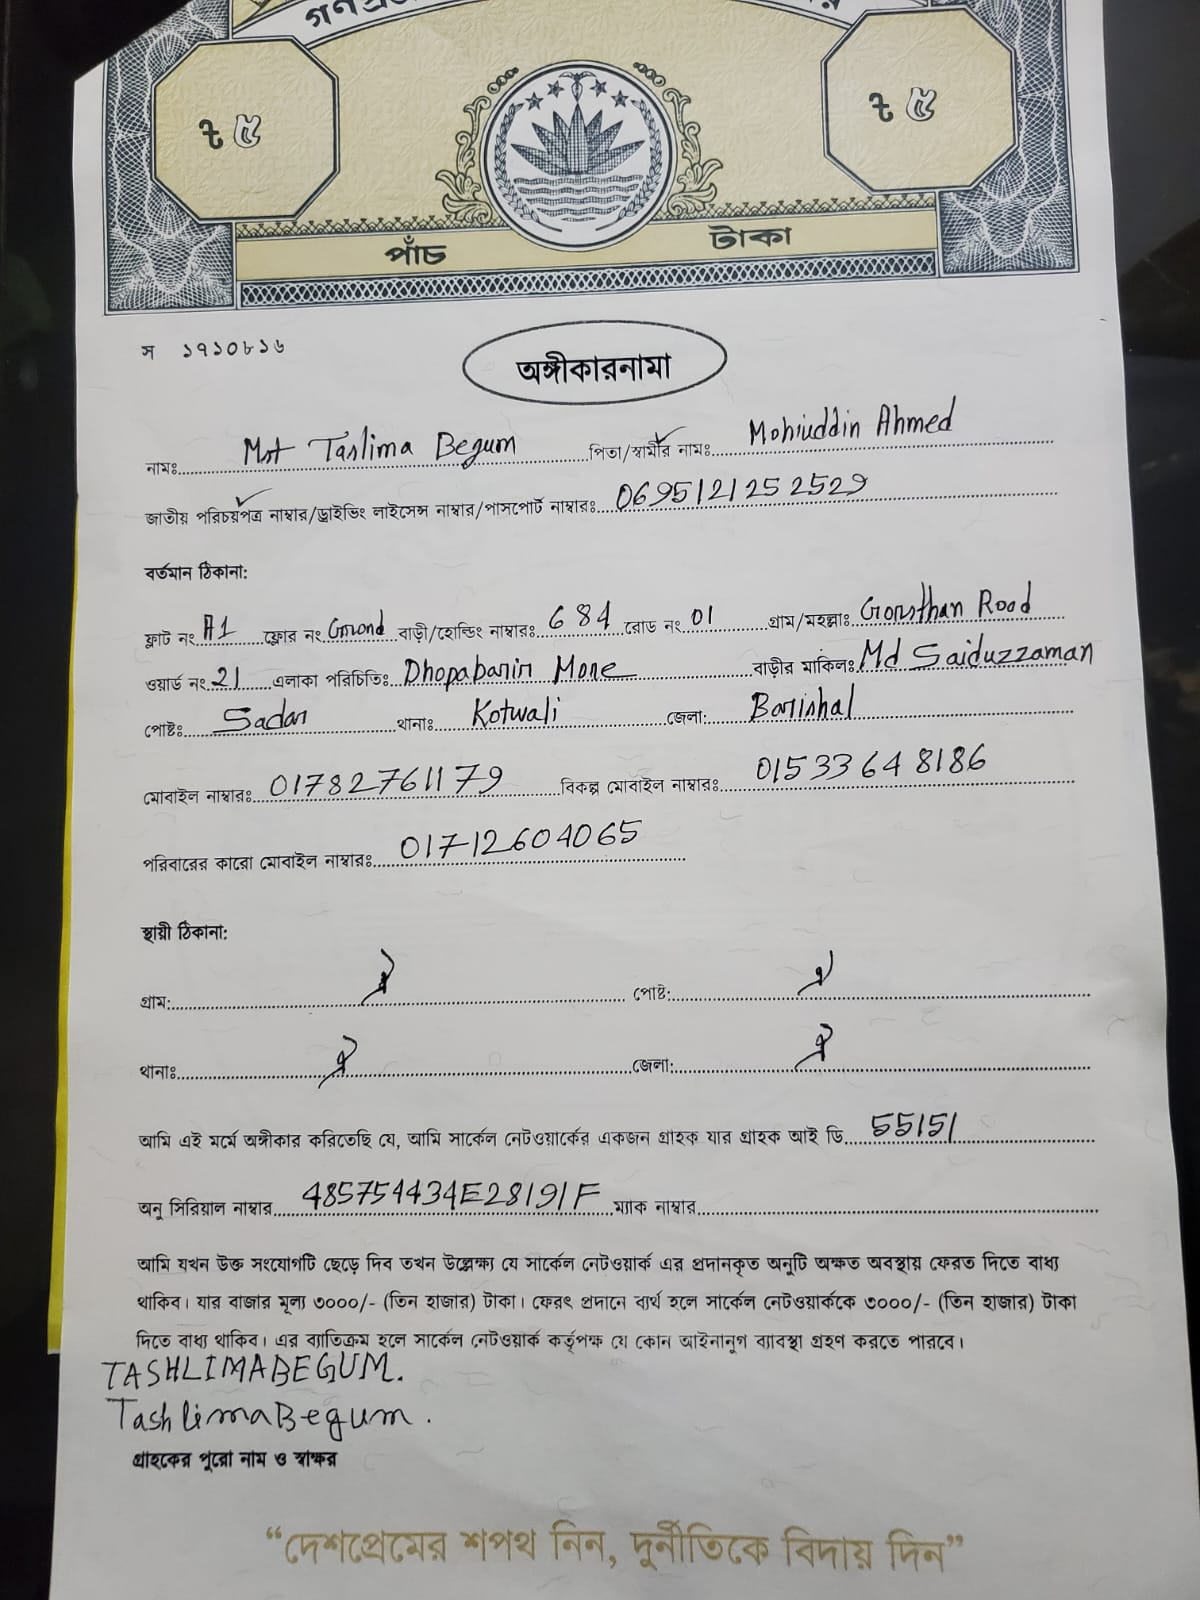 ৳ ৫
৳ ৫
পাঁচ টাকা
স ১৭১০৮১৬
অঙ্গীকারনামা
নামঃ Mst Taslima Begum পিতা/স্বামীর নামঃ Mohiuddin Ahmed
জাতীয় পরিচয়পত্র নাম্বার/ড্রাইভিং লাইসেন্স নাম্বার/পাসপোর্ট নাম্বারঃ 0695121252529
বর্তমান ঠিকানা:
ফ্লাট নং A1 ফ্লোর নং Ground বাড়ী/হোল্ডিং নাম্বারঃ 684 রোড নং 01 গ্রাম/মহল্লাঃ Gorsthan Road
ওয়ার্ড নং 21 এলাকা পরিচিতিঃ Dhopabarir More বাড়ীর মাকিলঃ Md Saiduzzaman
পোষ্টঃ Sadar থানাঃ Kotwali জেলা: Barishal
মোবাইল নাম্বারঃ 01782761179 বিকল্প মোবাইল নাম্বারঃ 01533648186
পরিবারের কারো মোবাইল নাম্বারঃ 01712604065
স্থায়ী ঠিকানা:
গ্রাম: ঐ পোষ্ট: ঐ
থানাঃ ঐ জেলা: ঐ
আমি এই মর্মে অঙ্গীকার করিতেছি যে, আমি সার্কেল নেটওয়ার্কের একজন গ্রাহক যার গ্রাহক আই ডি 55151
অনু সিরিয়াল নাম্বার 485754434E28191F ম্যাক নাম্বার
আমি যখন উক্ত সংযোগটি ছেড়ে দিব তখন উল্লেক্ষ্য যে সার্কেল নেটওয়ার্ক এর প্রদানকৃত অনুটি অক্ষত অবস্থায় ফেরত দিতে বাধ্য
থাকিব। যার বাজার মূল্য ৩০০০/- (তিন হাজার) টাকা। ফেরৎ প্রদানে ব্যর্থ হলে সার্কেল নেটওয়ার্ককে ৩০০০/- (তিন হাজার) টাকা
দিতে বাধ্য থাকিব। এর ব্যাতিক্রম হলে সার্কেল নেটওয়ার্ক কর্তৃপক্ষ যে কোন আইনানুগ ব্যাবস্থা গ্রহণ করতে পারবে।
TASHLIMABEGUM.
TashlimaBegum.
গ্রাহকের পুরো নাম ও স্বাক্ষর
“দেশপ্রেমের শপথ নিন, দুর্নীতিকে বিদায় দিন”